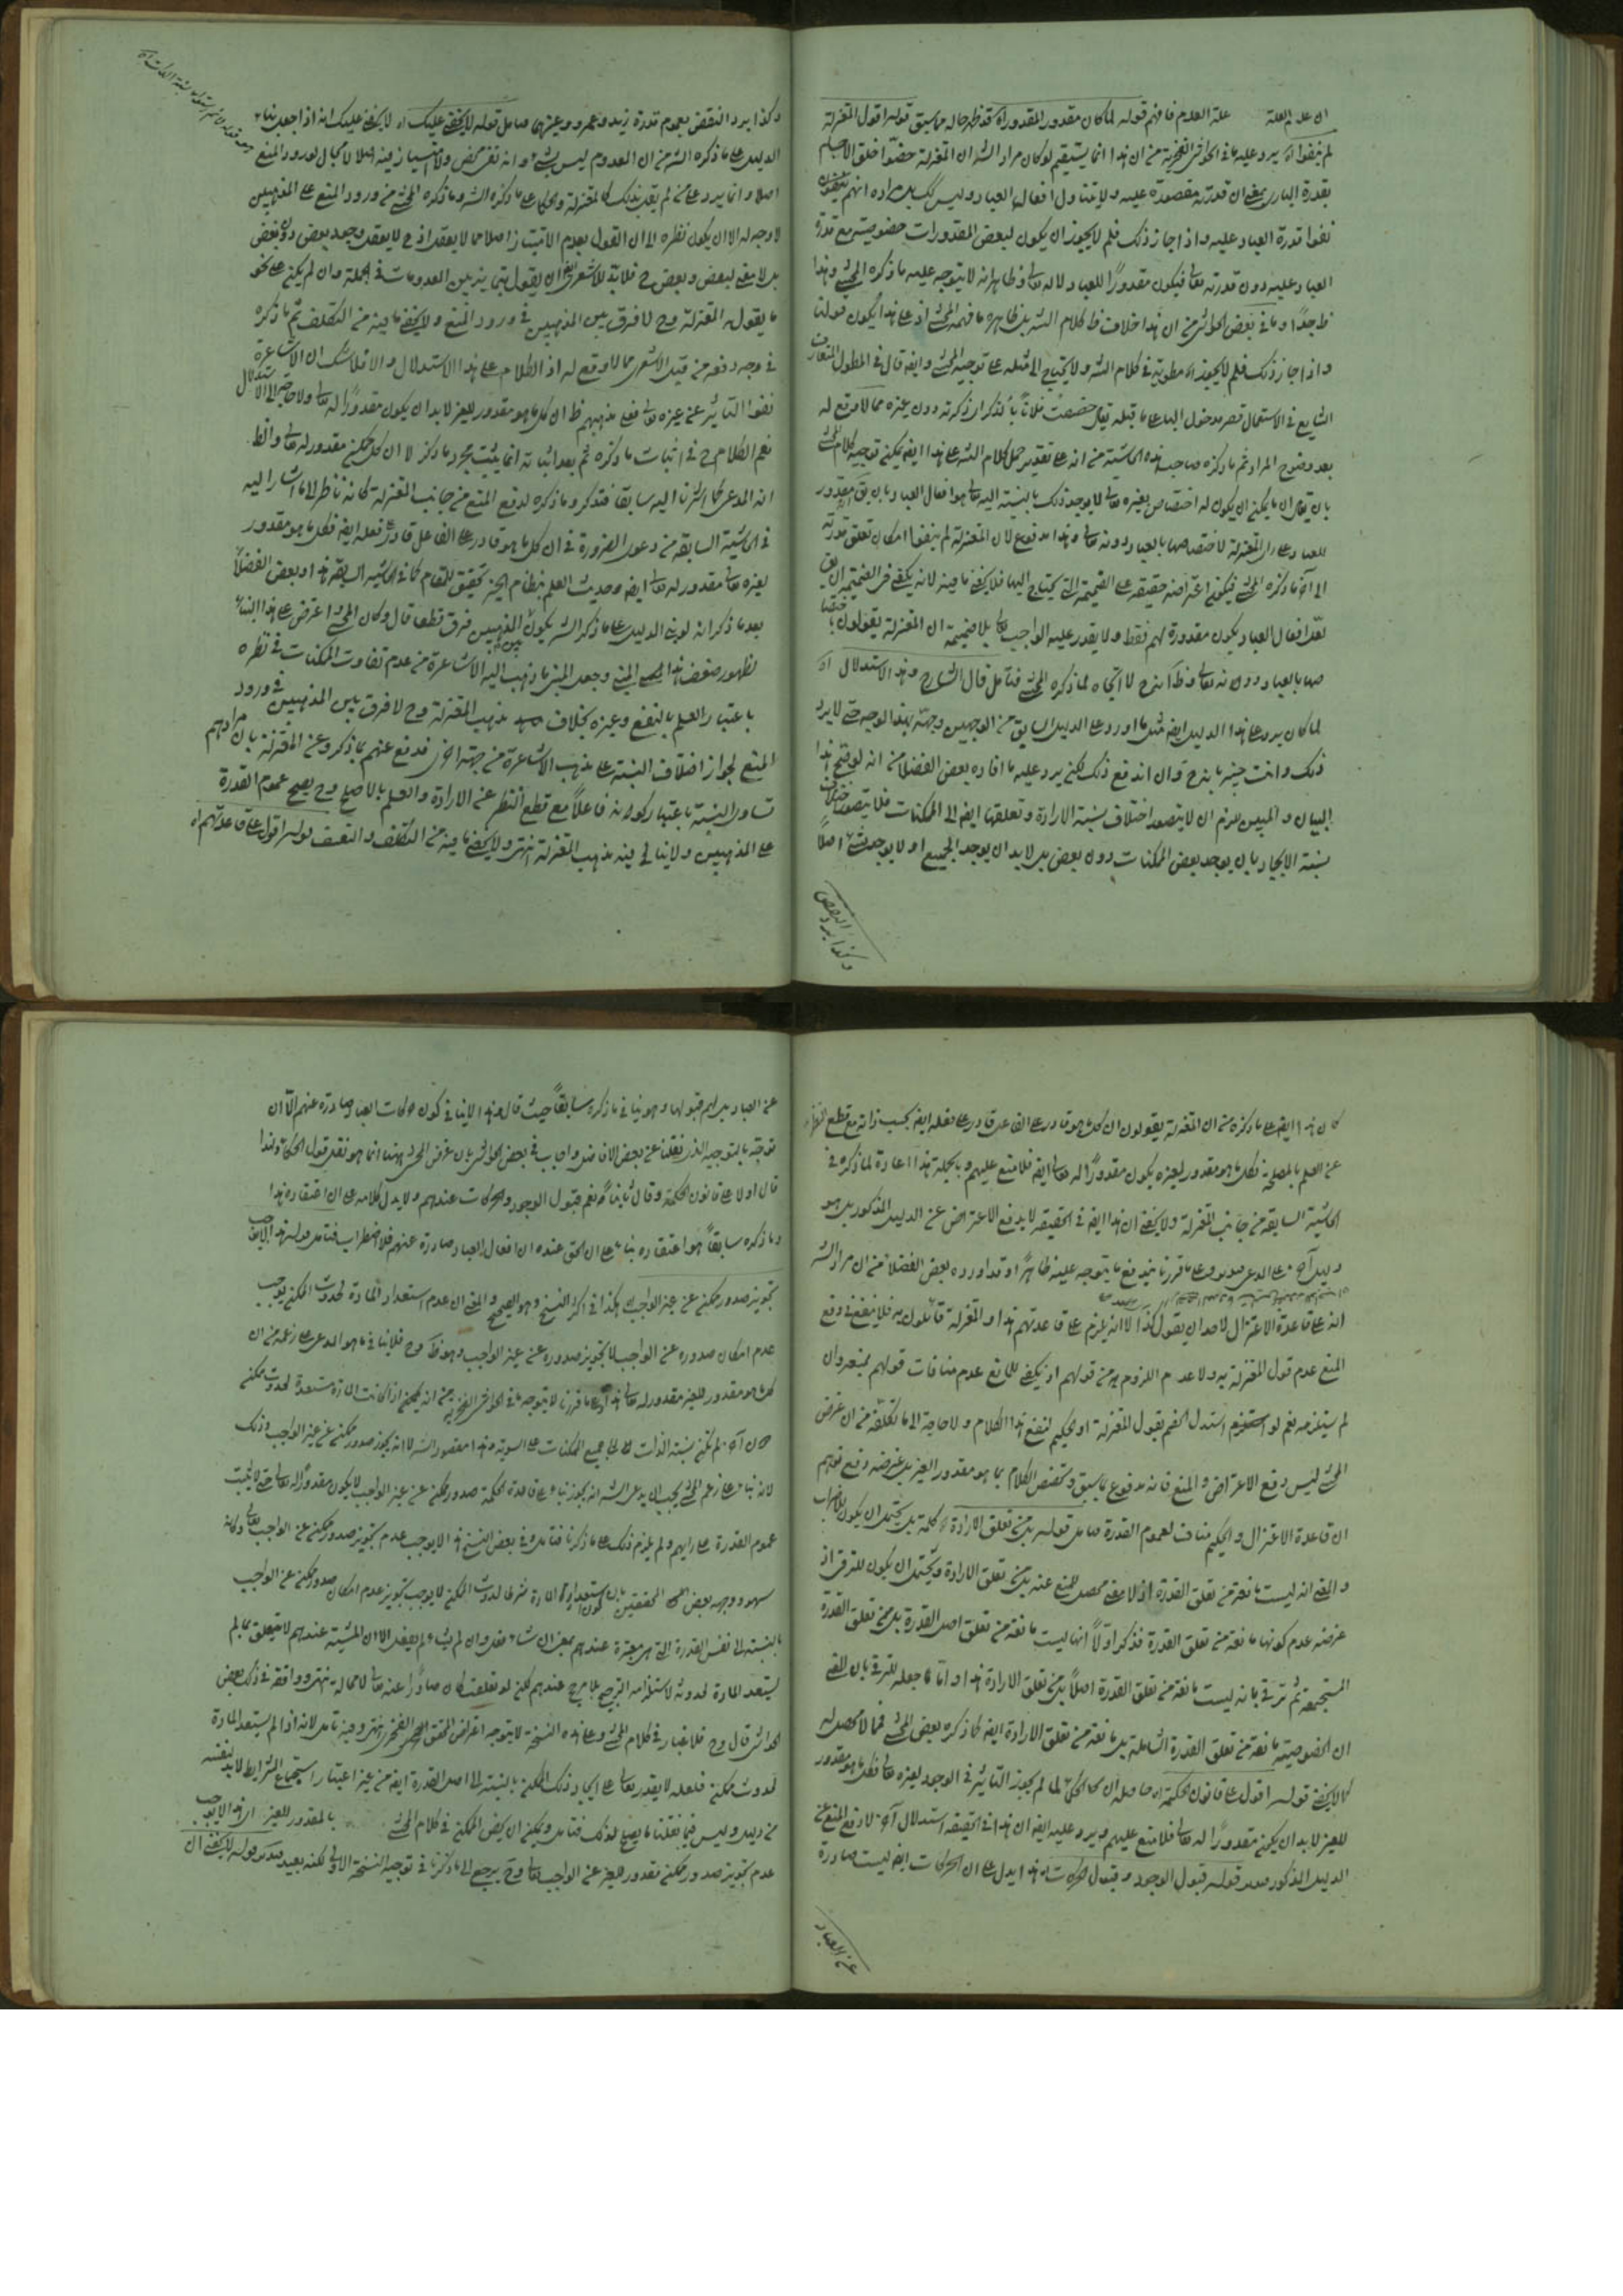 ان علة العلة علة العدم فافهم قوله لما كان مقدور المقدور اه قد ظهر حاله مما سبق قوله اقول المعتزلة
لم ينفوا اه يرد عليه ما في الحواشي الفخرية من ان هذا انما يستقيم لو كان مراد الش ان المعتزلة خصوا خلق الاجسام
بقدرة الباري بمعنى ان قدرته مقصورة عليه ولا يتناول افعال العباد وليس كك بل مراده انهم يقولون
نفوا قدرة العباد عليه واذا جاز ذلك فلم لا يجوز ان يكون لبعض المقدورات خصوصية مع قدرة
العباد عليه دون قدرته تعالى فيكون مقدورًا للعباد لا له تعالى وظاهر انه لا يتوجه عليه ما ذكره المحشي وهذا
ظ جدًا وما في بعض الحواشي من ان هذا خلاف ظ كلام الش بل ظاهره ما فهمه المحشي اذ على هذا يكون قولنا
واذا جاز ذلك فلم لا يجوز اه مطوية في كلام الش ولا يحتاج الى مثله على توجيه المحشي وايضا قال في المطول المتعارف
الشايع في الاستعمال قصر مدخول الباء على ما قبله يقال خصصت فلانًا بالذكر اي ذكرته دون غيره مما لا وقع له
بعد وضوح المراد ثم ما ذكره صاحب هذه الحاشية من انه على تقدير حمل كلام الش على هذا ايضا يمكن توجيه كلام المحشي
بان يقال ان ما يمكن ان يكون له اختصاص بغيره تعالى لا يوجد ذلك بالنسبة اليه تعالى هو افعال العباد بان يق مقدور
للعباد على راى المعتزلة لاختصاصها بالعباد دونه تعالى وهذا مدفوع لان المعتزلة لم ينفوا امكان تعلق قدرته
الى آخر ما ذكره المحشي فيكون اعتراضه حقيقة على الضميمة التي يحتاج اليها فلا يخفى ما فيه لانه يكفي في الضميمة ان يق
لعل افعال العباد يكون مقدورة لهم فقط ولا يقدر عليه الواجب تعالى بلا ضميمة ان المعتزلة يقولون باختصا
صها بالعباد دونه تعالى وظ انه ح لا اتجاه لما ذكره المحشي فتأمل قال الشارح وهذا الاستدلال اه
لما كان يرد على هذا الدليل ايضا مثل ما اورد على الدليل السابق من الوجهين وجهّه بهذا الوجه حتى لا يرد
ذلك وانت خبير بانه ح وان اندفع ذلك لكن يرد عليه ما افاده بعض الفضلا من انه لو صح هذا
البيان والتبيين للزم ان لا يتصور اختلاف نسبة الارادة وتعلقها ايضا الى الممكنات فلا يتصور اختلاف
نسبة الايجاد بان يوجد بعض الممكنات دون بعض بل لا بد ان يوجد الجميع او لا يوجد شيء اصلًا
وكذا يرد النقض
وكذا يرد النقض بعموم قدرة زيد وعمرو وغيرهما فتأمل قوله لا يخفى عليك اه لا يخفى عليك انه اذا جعل بناء
الدليل على ما ذكره الش من ان المعدوم ليس بشيء وانه نفي محض ولا امتياز فيه اصلا لا مجال لورود المنع
اصلا وانما يرد على من لم يقل بذلك كالمعتزلة والحكما على ما ذكره الش وما ذكره المحشي من ورود المنع على المذهبين
لا وجه له الا ان يكون نظره الى ان القول بعدم الامتياز اصلا مما لا يعقل اذ ح لا يعقل وجود بعض دون بعض
بل لا معنى لبعض وبعض ح فلا بد للاشعري ايضا ان يقول بتمايز بين المعدومات في الجملة وان لم يكن على نحو
ما يقوله المعتزلة وح لا فرق بين المذهبين في ورود المنع ولا يخفى ما فيه من التكلف ثم ما ذكره
في وجه دفعه من قبل الاشعري مما لا وقع له اذ الكلام على هذا الاستدلال والا فلا شك ان الاشاعرة
نفوا التأثير عن غيره تعالى فعلى مذهبهم ظ ان كل ما هو مقدور للغير لا بد ان يكون مقدورًا له تعالى ولا حاجة الى الاستدلال
نعم الكلام ح في اثبات ما ذكره ثم بعد اثباته انما يثبت مجرد ما ذكر لا ان كل ممكن مقدور له تعالى والظ
انه المدعى كما اشرنا اليه سابقا فتذكر وما ذكره لدفع المنع من جانب المعتزلة كانه ناظر الى ما اشار اليه
في الحاشية السابقة من دعوى الضرورة في ان كل ما هو قادر على الفاعل قادر على فعله ايضا فكل ما هو مقدور
لغيره تعالى مقدور له تعالى ايضا وحديث العلم بنظام الخير تحقيق للمقام كما في الحاشية السابقة هذا وبعض الفضلا
بعد ما ذكر انه لو بنى الدليل على ما ذكره الش يكون بين المذهبين فرق قطعا قال وكان المحشي اعترض على هذا البناء
لظهور ضعف هذا المبنى وجعل المبنى ما ذهب اليه الاشاعرة من عدم تفاوت الممكنات في نظره
باعتبار العلم بالنفع وغيره بخلاف مذهب المعتزلة وح لا فرق بين المذهبين في ورود
المنع لجواز اختلاف النسبة على مذهب الاشاعرة من جهة اخرى فدفع عنهم بما ذكر وعن المعتزلة بان مرادهم
تساوي النسبة باعتبار كونه فاعلًا مع قطع النظر عن الارادة والعلم بالاصلح وح يصح عموم القدرة
على المذهبين ولا ينافي فيه مذهب المعتزلة انتهى ولا يخفى ما فيه من التكلف والتعسف قوله اقول على قاعدتهم اه
كان هذا ايضا على ما ذكره من ان المعتزلة يقولون ان كل ما هو قادر على الفاعل قادر على فعله ايضا بحسب ذاته مع قطع النظر
عن العلم بالمصلحة فكل ما هو مقدور لغيره يكون مقدورًا له تعالى ايضا فلا منع عليهم وبالجملة هذا اعادة لما ذكره في
الحاشية السابقة من جانب المعتزلة ولا يخفى ان هذا ايضا في الحقيقة لا يدفع الاعتراض عن الدليل المذكور بل هو
دليل آخر على المدعى على ما قررنا يندفع ما يتوجه عليه ظاهرًا وقد اورده بعض الفضلا من ان مراد الش
انه على قاعدة الاعتزال لاحد ان يقول كذا لا انه يلزم على قاعدتهم هذا والمعتزلة قائلون به فلا ينفع في دفع
المنع عدم قول المعتزلة به ولا عدم اللزوم به من قولهم اذ يكفي للمانع عدم منافات قولهم بمنعه وان
لم يستلزمه نعم لو استدل الخصم بقول المعتزلة او الحكيم لنفع هذا الكلام ولا حاجة الى ما تكلفه من ان غرض
المحشي ليس دفع الاعتراض والمنع فانه مدفوع بما سبق وتخصص الكلام بما هو مقدور الغير بل غرضه دفع توهم
ان قاعدة الاعتزال والحكيم مناف لعموم القدرة فتأمل قوله بل من تعلق الارادة اه كلمة بل يحتمل ان يكون للاضراب
والمعنى انه ليست مانعة من تعلق القدرة اذ لا معنى محصل للمنع عنه بل من تعلق الارادة ويحتمل ان يكون للترقي اذ
غرضه عدم كونها مانعة من تعلق القدرة فذكر اولًا انها ليست مانعة من تعلق اصل القدرة بل من تعلق القدرة
المستجمعة ثم ترقى بانه ليست مانعة من تعلق القدرة اصلًا بل من تعلق الارادة هذا واما ما جعله للترقي بان المعنى
ان الخصوصية مانعة من تعلق القدرة الشاملة بل مانعة من تعلق الارادة ايضا كما ذكره بعض المحشين فمما لا محصل له
كما لا يخفى قوله اقول على قانون الحكمة اه حاصله ان الحكماء لما لم يجوز التأثير في الوجود لغيره تعالى فكل ما هو مقدور
للغير لا بد ان يكون مقدورًا له تعالى فلا منع عليهم ويرد عليه ايضا ان هذا في الحقيقة استدلال آخر لا دفع المنع عن
الدليل المذكور قوله قبول الوجود وقبول الحركات اه هذا يدل على ان الحركات ايضا ليست صادرة
عن العباد
عن العباد بل لهم قبولها وهو ينافي ما ذكره سابقًا حيث قال هذا لا ينافي كون حركات العباد صادرة عنهم الا ان
يوجّه بالتوجيه الذي نقلنا عن بعض الافاضل واجاب في بعض الحواشي بان غرض المحشي ههنا انما هو نقل قول الحكماء ولذا
قال اولا على قانون الحكمة وقال ثانيًا نعم قبول الوجود والحركات عندهم ولا يدل كلامه على ان اعتقاده هذا
وما ذكره سابقًا هو اعتقاده بناء على ان الحق عنده ان افعال العباد صادرة عنهم فلا اضطراب فتأمل قوله هذا لا يوجب
تجويز صدور ممكن عن غير الواجب هكذا في اكثر النسخ وهو الصحيح والمعنى ان عدم استعداد المادة لحدوث الممكن يوجب
عدم امكان صدوره عن الواجب لا تجويز صدوره عن غير الواجب وهو ظ وح فلا ينافي ما هو المدعى على زعمه من ان
كل ما هو مقدور للغير مقدور له تعالى هذا وعلى ما قررنا لا يتوجه ما في الحواشي الفخرية من انه يمكن اذا كانت المادة مستعدة لحدوث ممكن
لم تكن نسبة الذات الى جميع الممكنات على السوية وهذا مقصود الش لا انه يجوز صدور ممكن عن غير الواجب وذلك
لانه بناء على زعم المحشي يجب ان يدعي الش انه يجوز بناء على قاعدة الحكمة صدور ممكن عن غير الواجب لا يكون مقدورًا له تعالى حتى لا يثبت
عموم القدرة على رايهم ولم يلزم ذلك على ما ذكرنا فتأمل وفي بعض النسخ هذا لا يوجب عدم تجويز صدور ممكن عن الواجب تعالى وكانه
سهو ووجهه بعض المحققين بان كون استعداد المادة شرطا لحدوث الممكن لا يوجب تجويز عدم امكان صدور ممكن عن الواجب
بالنسبة الى نفس القدرة التي هي معتبرة عندهم بمعنى ان شاء فعل وان لم يشاء لم يفعل الا ان المشية عندهم لا يتعلق بما لم
يستعد المادة لحدوثه لاستلزامه الترجيح بلا مرجح عندهم لكن لو تعلقت لكان صادرًا عنه تعالى لا محالة انتهى ووافقه في ذلك بعض
الحواشي قال وح فلا غبار في كلام المحشي وعلى هذه النسخة لا يتوجه اعتراض المحقق الفخري انتهى وفيه تأمل لانه اذا لم يستعد المادة
لحدوث ممكن فلعله لا يقدر تعالى على ايجاد ذلك الممكن بالنسبة الى اصل القدرة ايضا من غير اعتبار استجماع الشرايط لا بد لنفيه
من دليل وليس فيما نقلنا ما يصلح لذلك فتأمل ويمكن ان يخص الممكن في كلام المحشي بالمقدور للغير اي هذا لا يوجب
عدم تجويز صدور ممكن مقدور للغير عن الواجب تعالى وح يرجع الى ما ذكرنا في توجيه النسخة الاولى لكنه بعيد قوله لا يخفى ان